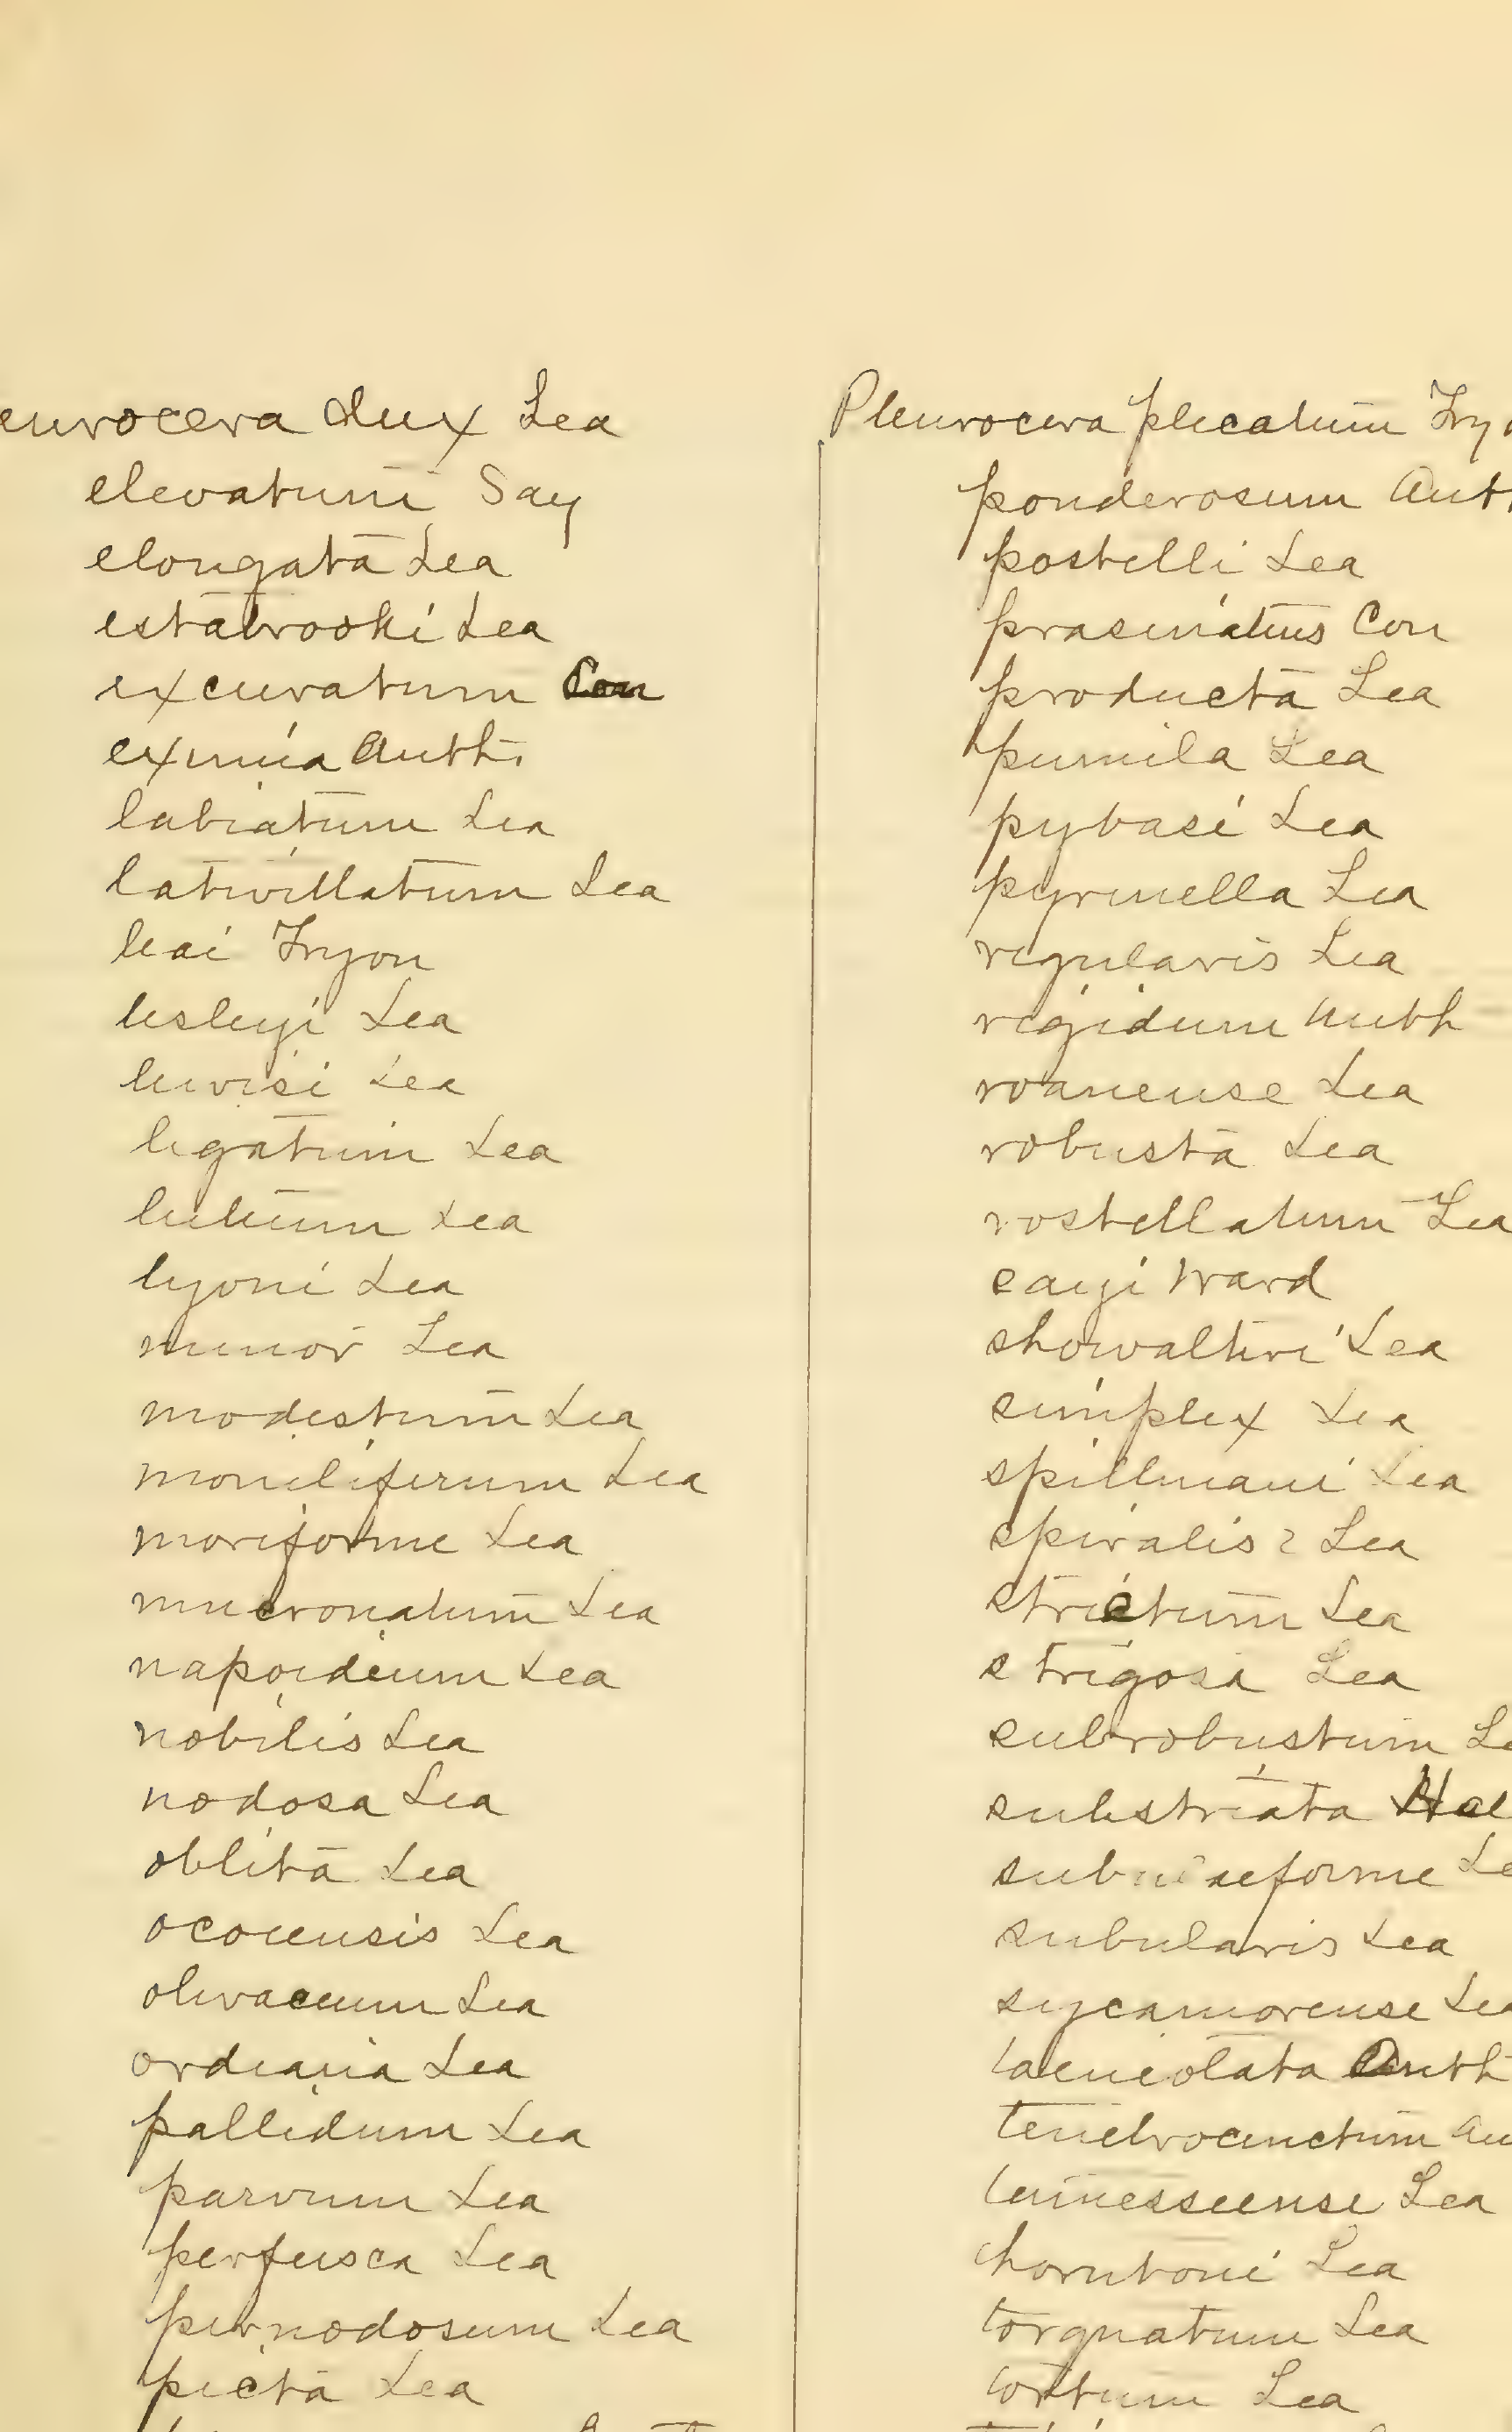 eurocera dux Lea
elevatum Say
elongata Lea
estabrooki Lea
excuvatum Con
eximia Anth.
labiatum Lea
lativittatum Lea
leai Tryon
lesleyi Lea
lewisi Lea
ligatum Lea
luteum Lea
lyoni Lea
minor Lea
modestum Lea
moniliferum Lea
moriforme Lea
mucronatum Lea
napoideum Lea
nobilis Lea
nodosa Lea
oblita Lea
ocoeensis Lea
olivaceum Lea
ordiania Lea
pallidum Lea
parvum Lea
perfusca Lea
pernodosum Lea
picta Lea
Pleurocera plicatum Try
ponderosum Anth
postelli Lea
prasinatus Con
producta Lea
pumila Lea
pybasi Lea
pyrinella Lea
regularis Lea
rigidum Anth
roanense Lea
robusta Lea
rostellatum Lea
sayi Ward
showalteri Lea
simplex Lea
spillmani Lea
spiralis? Lea
strictum Lea
strigosa Lea
subrobustum Le
substriata Hal
Le
subularis Lea
sycamorense Lea
taeniolata Anth
tenebrocinctum An
tennesseense Lea
thorntoni Lea
torquatum Lea
tortum Lea